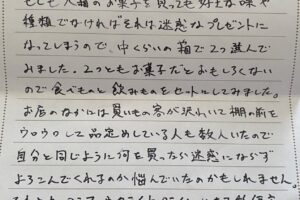 もしも大箱のお菓子を買っても好まな味や
種類でなければそれは迷惑なプレゼントに
なってしまうので、中くらいの箱で2つ選んで
みました。2つともお菓子だとおもしろくない
ので食べものと飲みものをセットにしてみました。
お店のなかには買いもの客が沢山いて棚の前を
ウロウロして品定めしている人も数人いたので
自分と同じように何を買ったら迷惑にならず
よろこんでくれるのか悩んでいたのかもしれません。